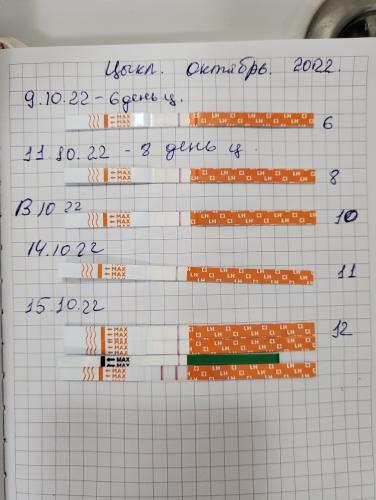 Цикл. Октябрь. 2022.
9.10.22 - 6 день ц.
MAX
MAX
LH
6
11.10.22 - 8 день ц.
MAX
MAX
LH
8
13 10 22
MAX
MAX
LH
10
14.10.22
MAX
MAX
LH
11
15.10.22
MAX
MAX
LH
12
MAX
MAX
MAX
LH